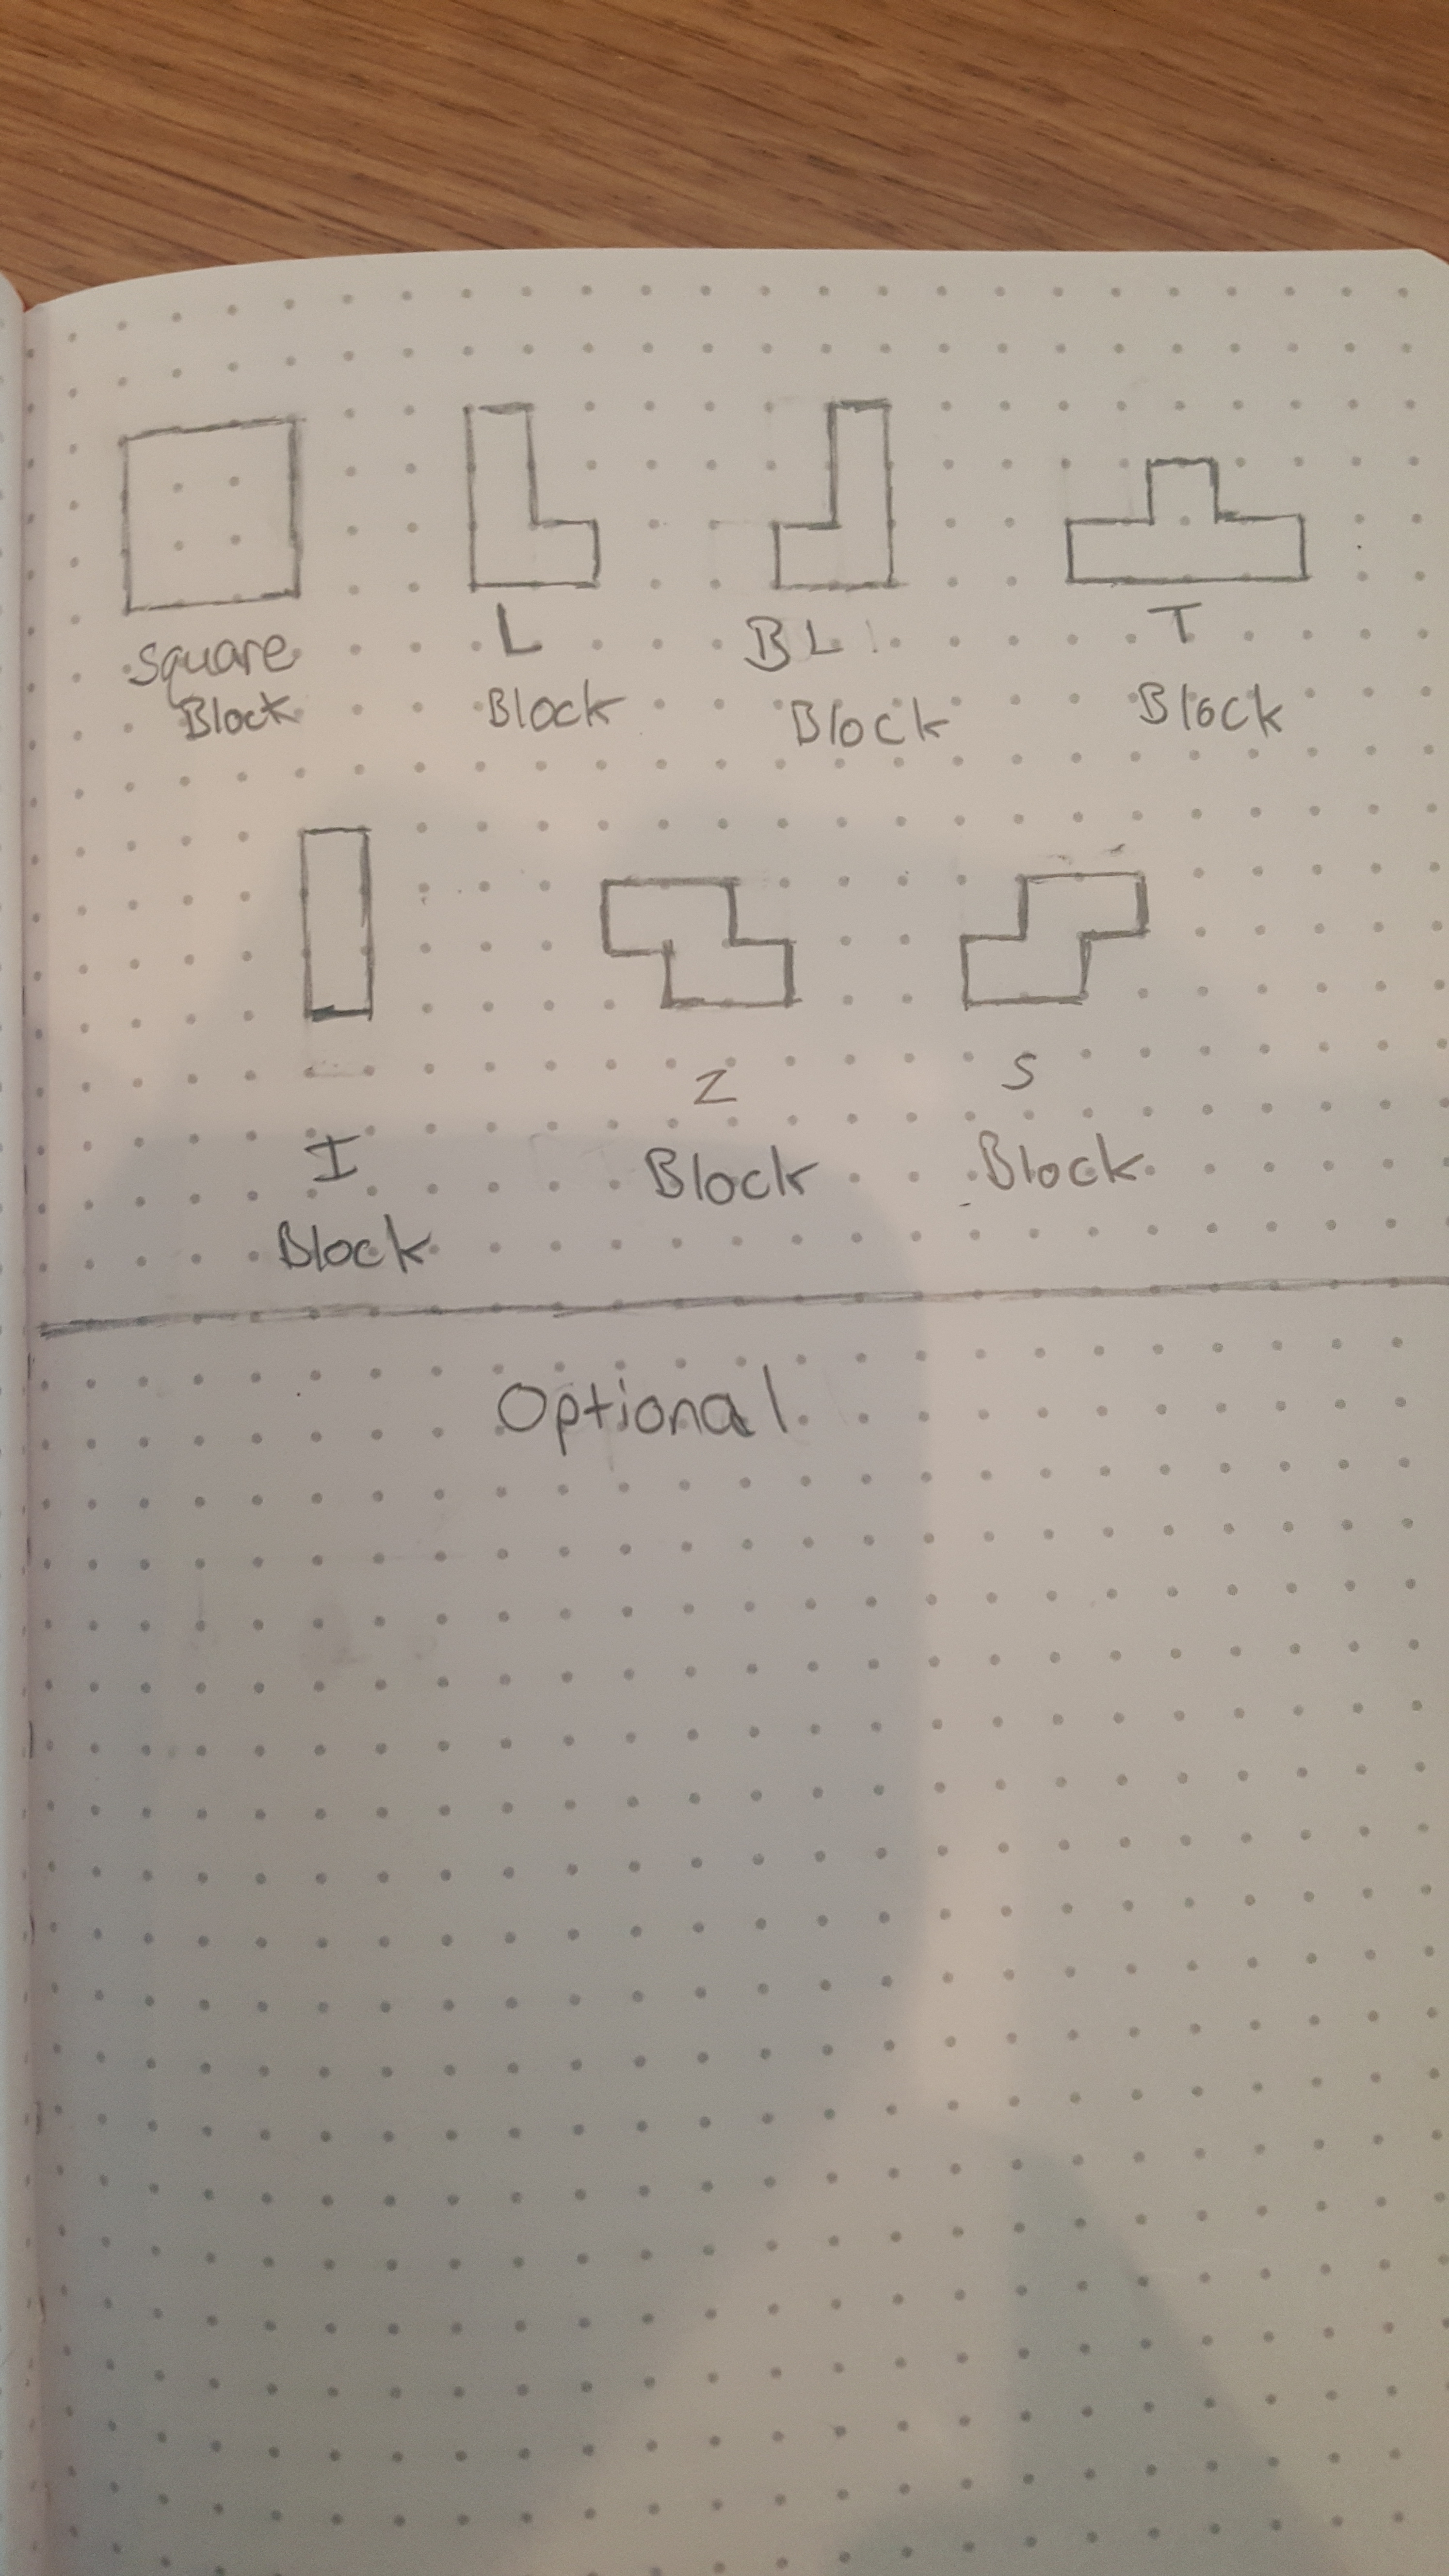 Square
Block
L
Block
BL
Block
T
Block
I
Block
Z
Block
S
Block
Optional